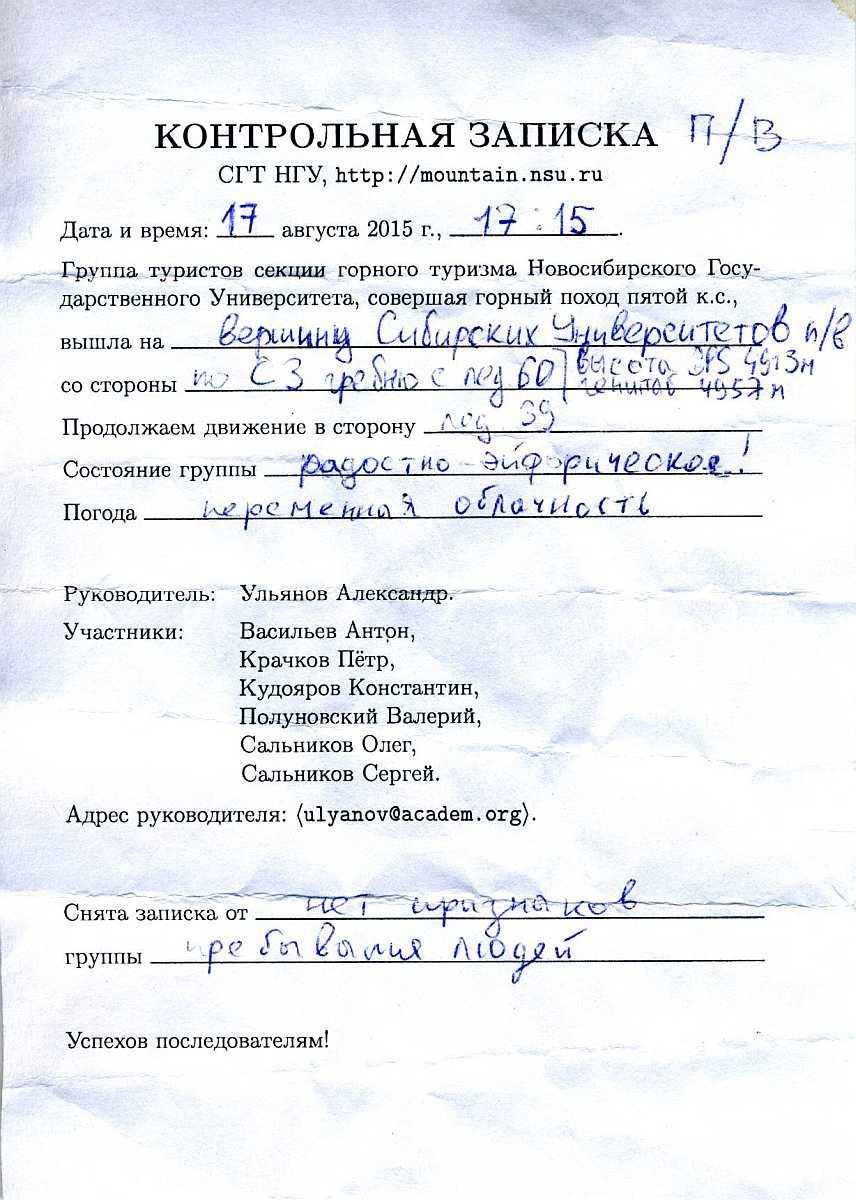 КОНТРОЛЬНАЯ ЗАПИСКА П/В
СГТ НГУ, http://mountain.nsu.ru
Дата и время: 17 августа 2015 г., 17:15.
Группа туристов секции горного туризма Новосибирского Госу-
дарственного Университета, совершая горный поход пятой к.с.,
вышла на вершину Сибирских Университетов п/в
со стороны по СЗ гребню с лед 60 высота GPS 4913м
4957м
Продолжаем движение в сторону лед 39
Состояние группы радостно-эйфорическое!
Погода переменная облачность
Руководитель: Ульянов Александр.
Участники: Васильев Антон,
Крачков Пётр,
Кудояров Константин,
Полуновский Валерий,
Сальников Олег,
Сальников Сергей.
Адрес руководителя: ⟨ulyanov@academ.org⟩.
Снята записка от нет признаков
группы пребывания людей
Успехов последователям!